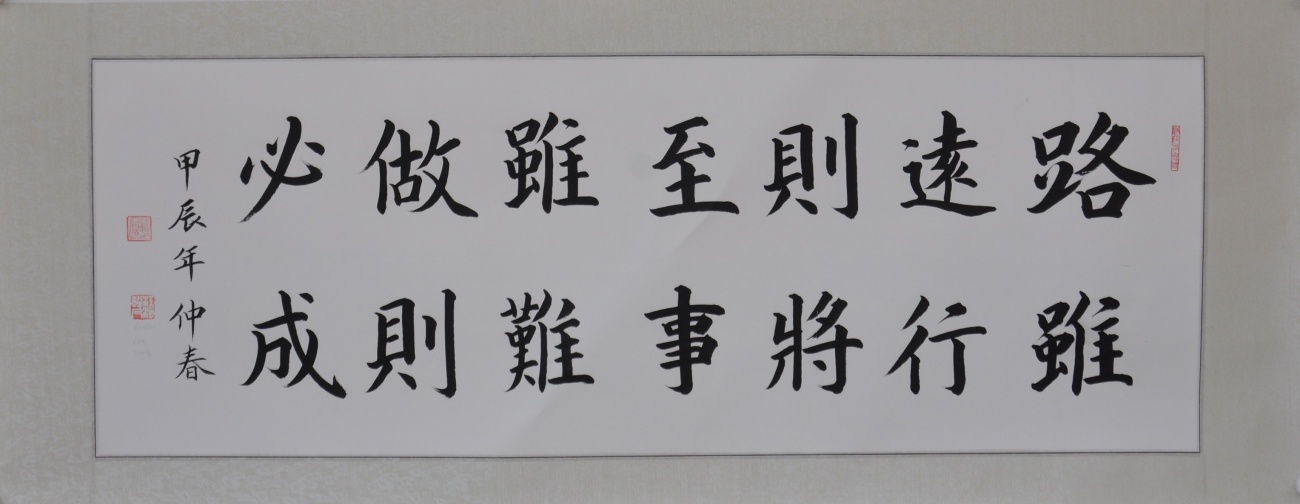 路雖
遠行
則將
至事
雖難
做則
必成
甲辰年仲春